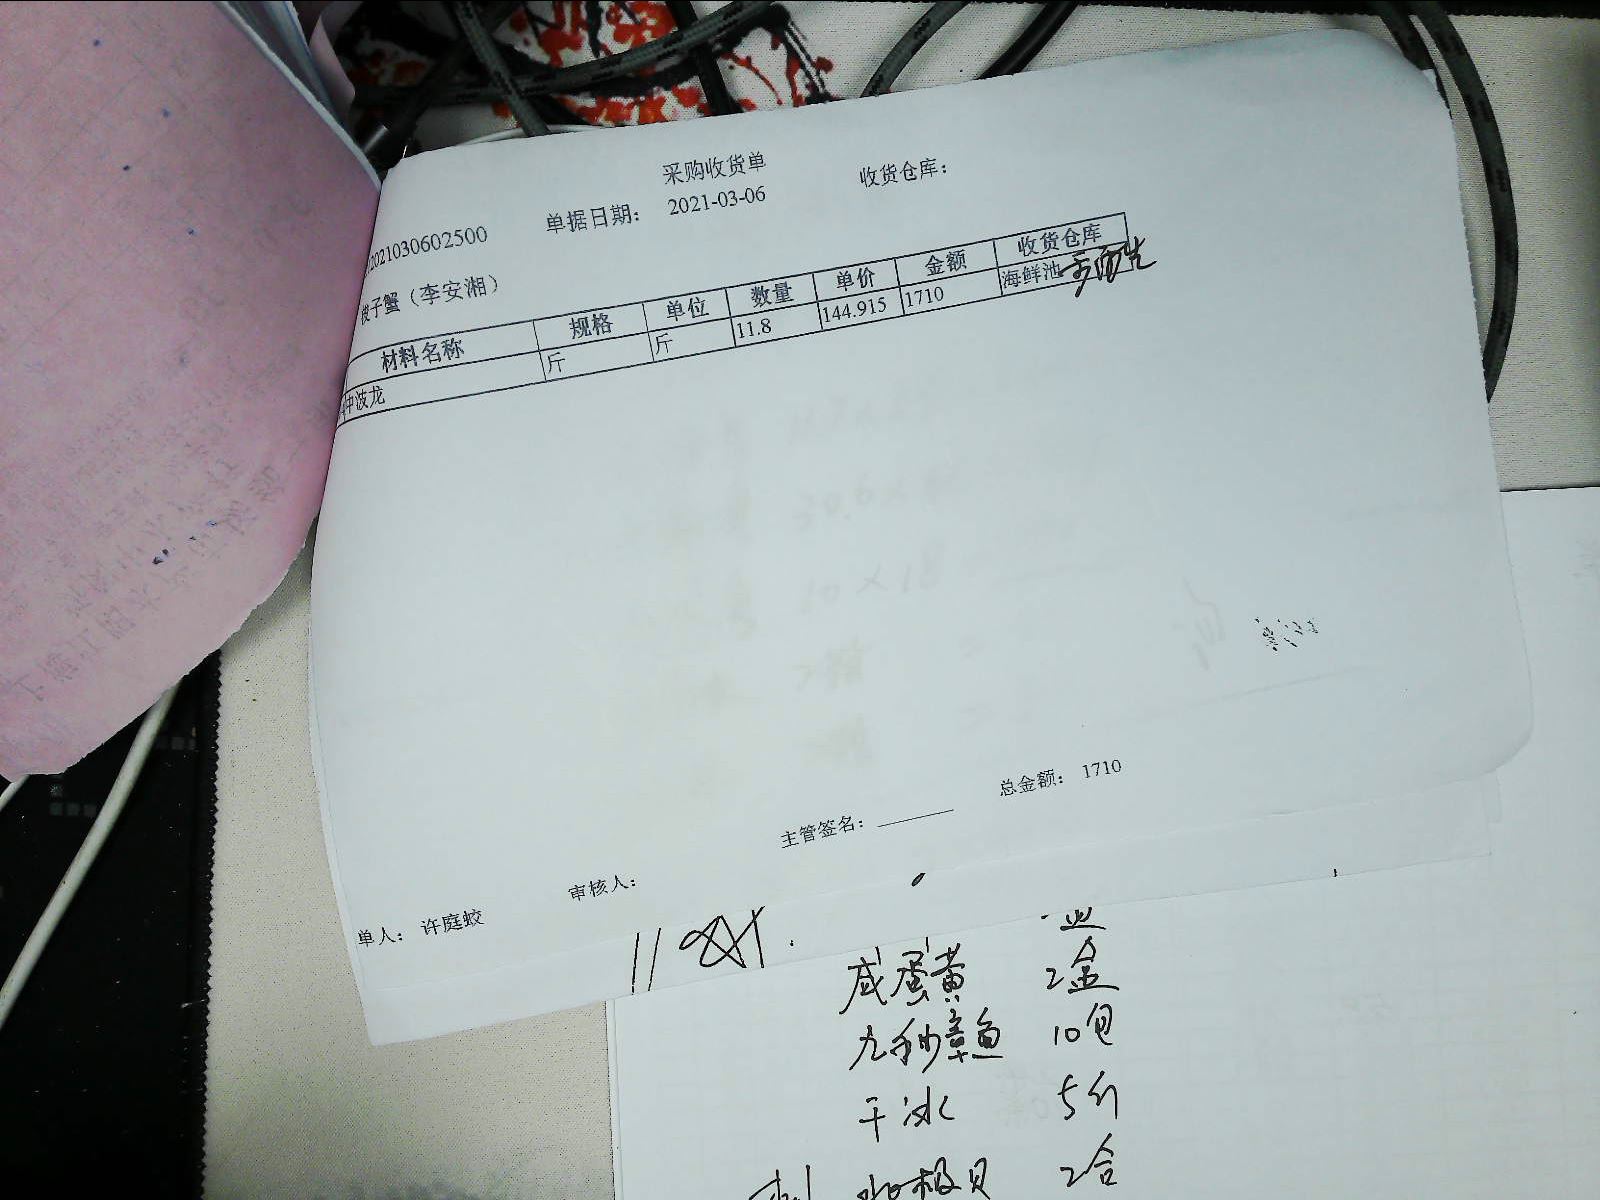 采购收货单
2021030602500 单据日期： 2021-03-06 收货仓库：
梭子蟹（李安湘）
材料名称 规格 单位 数量 单价 金额 收货仓库
中波龙 斤 斤 11.8 144.915 1710 海鲜池
总金额： 1710
主管签名：
审核人：
单人： 许庭蛟
咸蛋黄 2盒
九秒章鱼 10包
干冰 5斤
极贝 2合